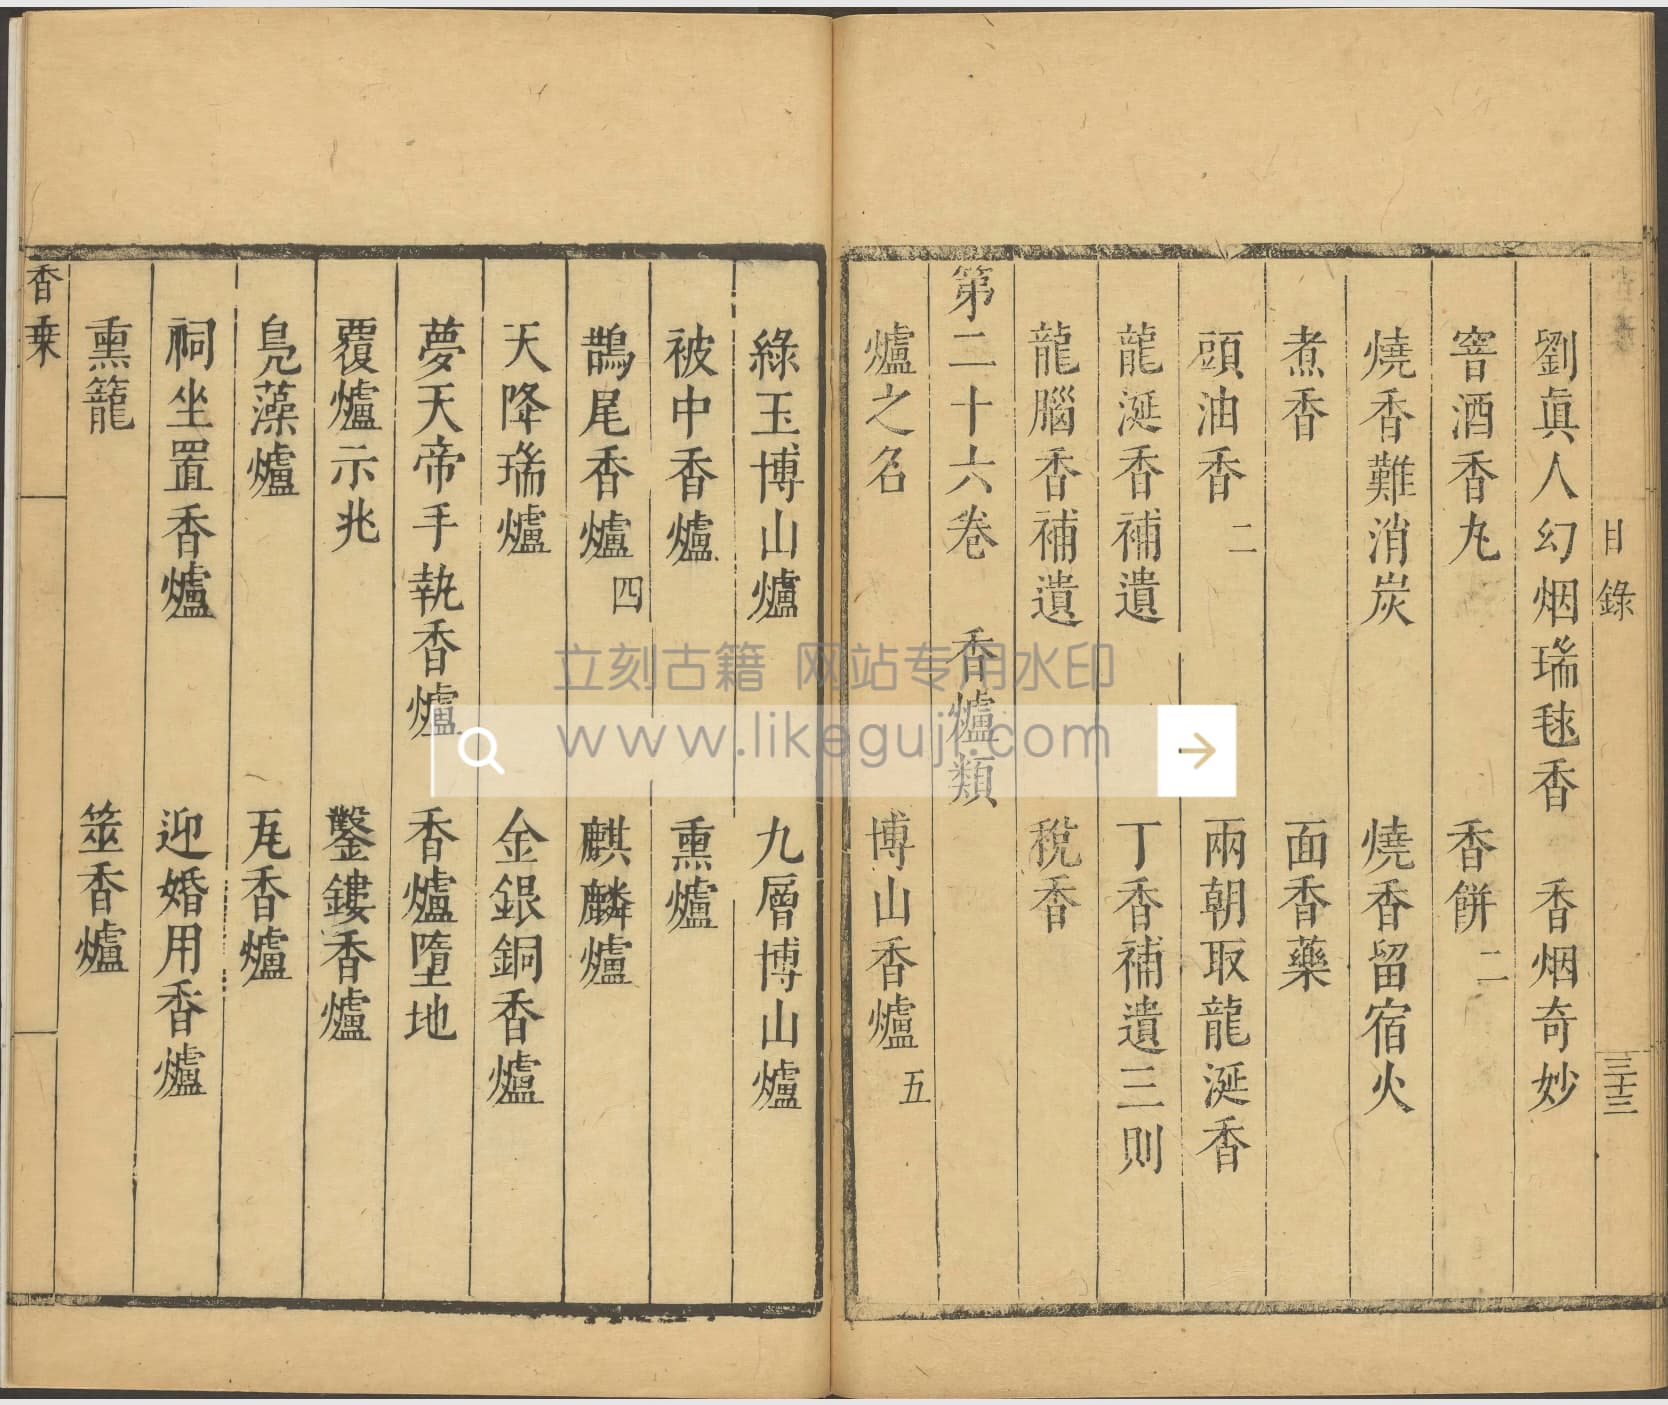 目錄
三十三
劉眞人幻烟瑞毬香　香烟奇妙
窖酒香丸　香餅二
燒香難消炭　燒香留宿火
煮香　面香藥
頭油香二　兩朝取龍涎香
龍涎香補遺　丁香補遺三则
龍腦香補遺　稅香
第二十六卷　香爐類
爐之名　博山香爐五
綠玉博山爐　九層博山爐
被中香爐　熏爐
鵲尾香爐四　麒麟爐
天降瑞爐　金銀銅香爐
夢天帝手執香爐　香爐墮地
覆爐示兆　鑿鏤香爐
鳧藻爐　瓦香爐
祠坐置香爐　迎婚用香爐
熏籠　筮香爐
香乗
立刻古籍 网站专用水印
www.likeguji.com